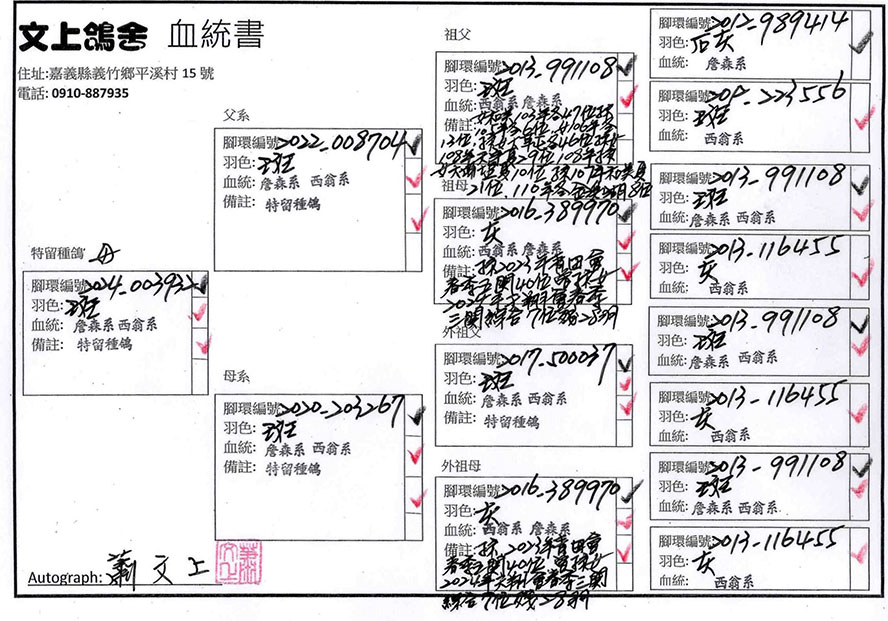 文上鴿舍 血統書
住址:嘉義縣義竹鄉平溪村 15 號
電話: 0910-887935
特留種鴿
腳環編號2024-003932
羽色: 斑
血統: 詹森系 西翁系
備註: 特留種鴿
父系
腳環編號2022-008704
羽色: 斑
血統: 詹森系 西翁系
備註: 特留種鴿
母系
腳環編號2020-203267
羽色: 斑
血統: 詹森系 西翁系
備註: 特留種鴿
祖父
腳環編號2013-991108
羽色: 斑
血統: 西翁系 詹森系
備註:
祖母
腳環編號2016-389970
羽色: 灰
血統: 西翁系 詹森系
備註: 孫2023年青田會
春季五關40位
三關綜合7位
外祖父
腳環編號2017-500037
羽色: 斑
血統: 詹森系 西翁系
備註: 特留種鴿
外祖母
腳環編號2016-389970
羽色: 灰
血統: 西翁系 詹森系
備註: 孫2023年青田會
春季五關40位
綜合7位
腳環編號2012-989414
羽色: 石灰
血統: 詹森系
腳環編號 223556
羽色: 斑
血統: 西翁系
腳環編號2013-991108
羽色: 斑
血統: 詹森系 西翁系
腳環編號2013-116455
羽色: 灰
血統: 西翁系
腳環編號2013-991108
羽色: 斑
血統: 詹森系 西翁系
腳環編號2013-116455
羽色: 灰
血統: 西翁系
腳環編號2013-991108
羽色: 斑
血統: 詹森系 西翁系
腳環編號2013-116455
羽色: 灰
血統: 西翁系
Autograph: 蕭文上